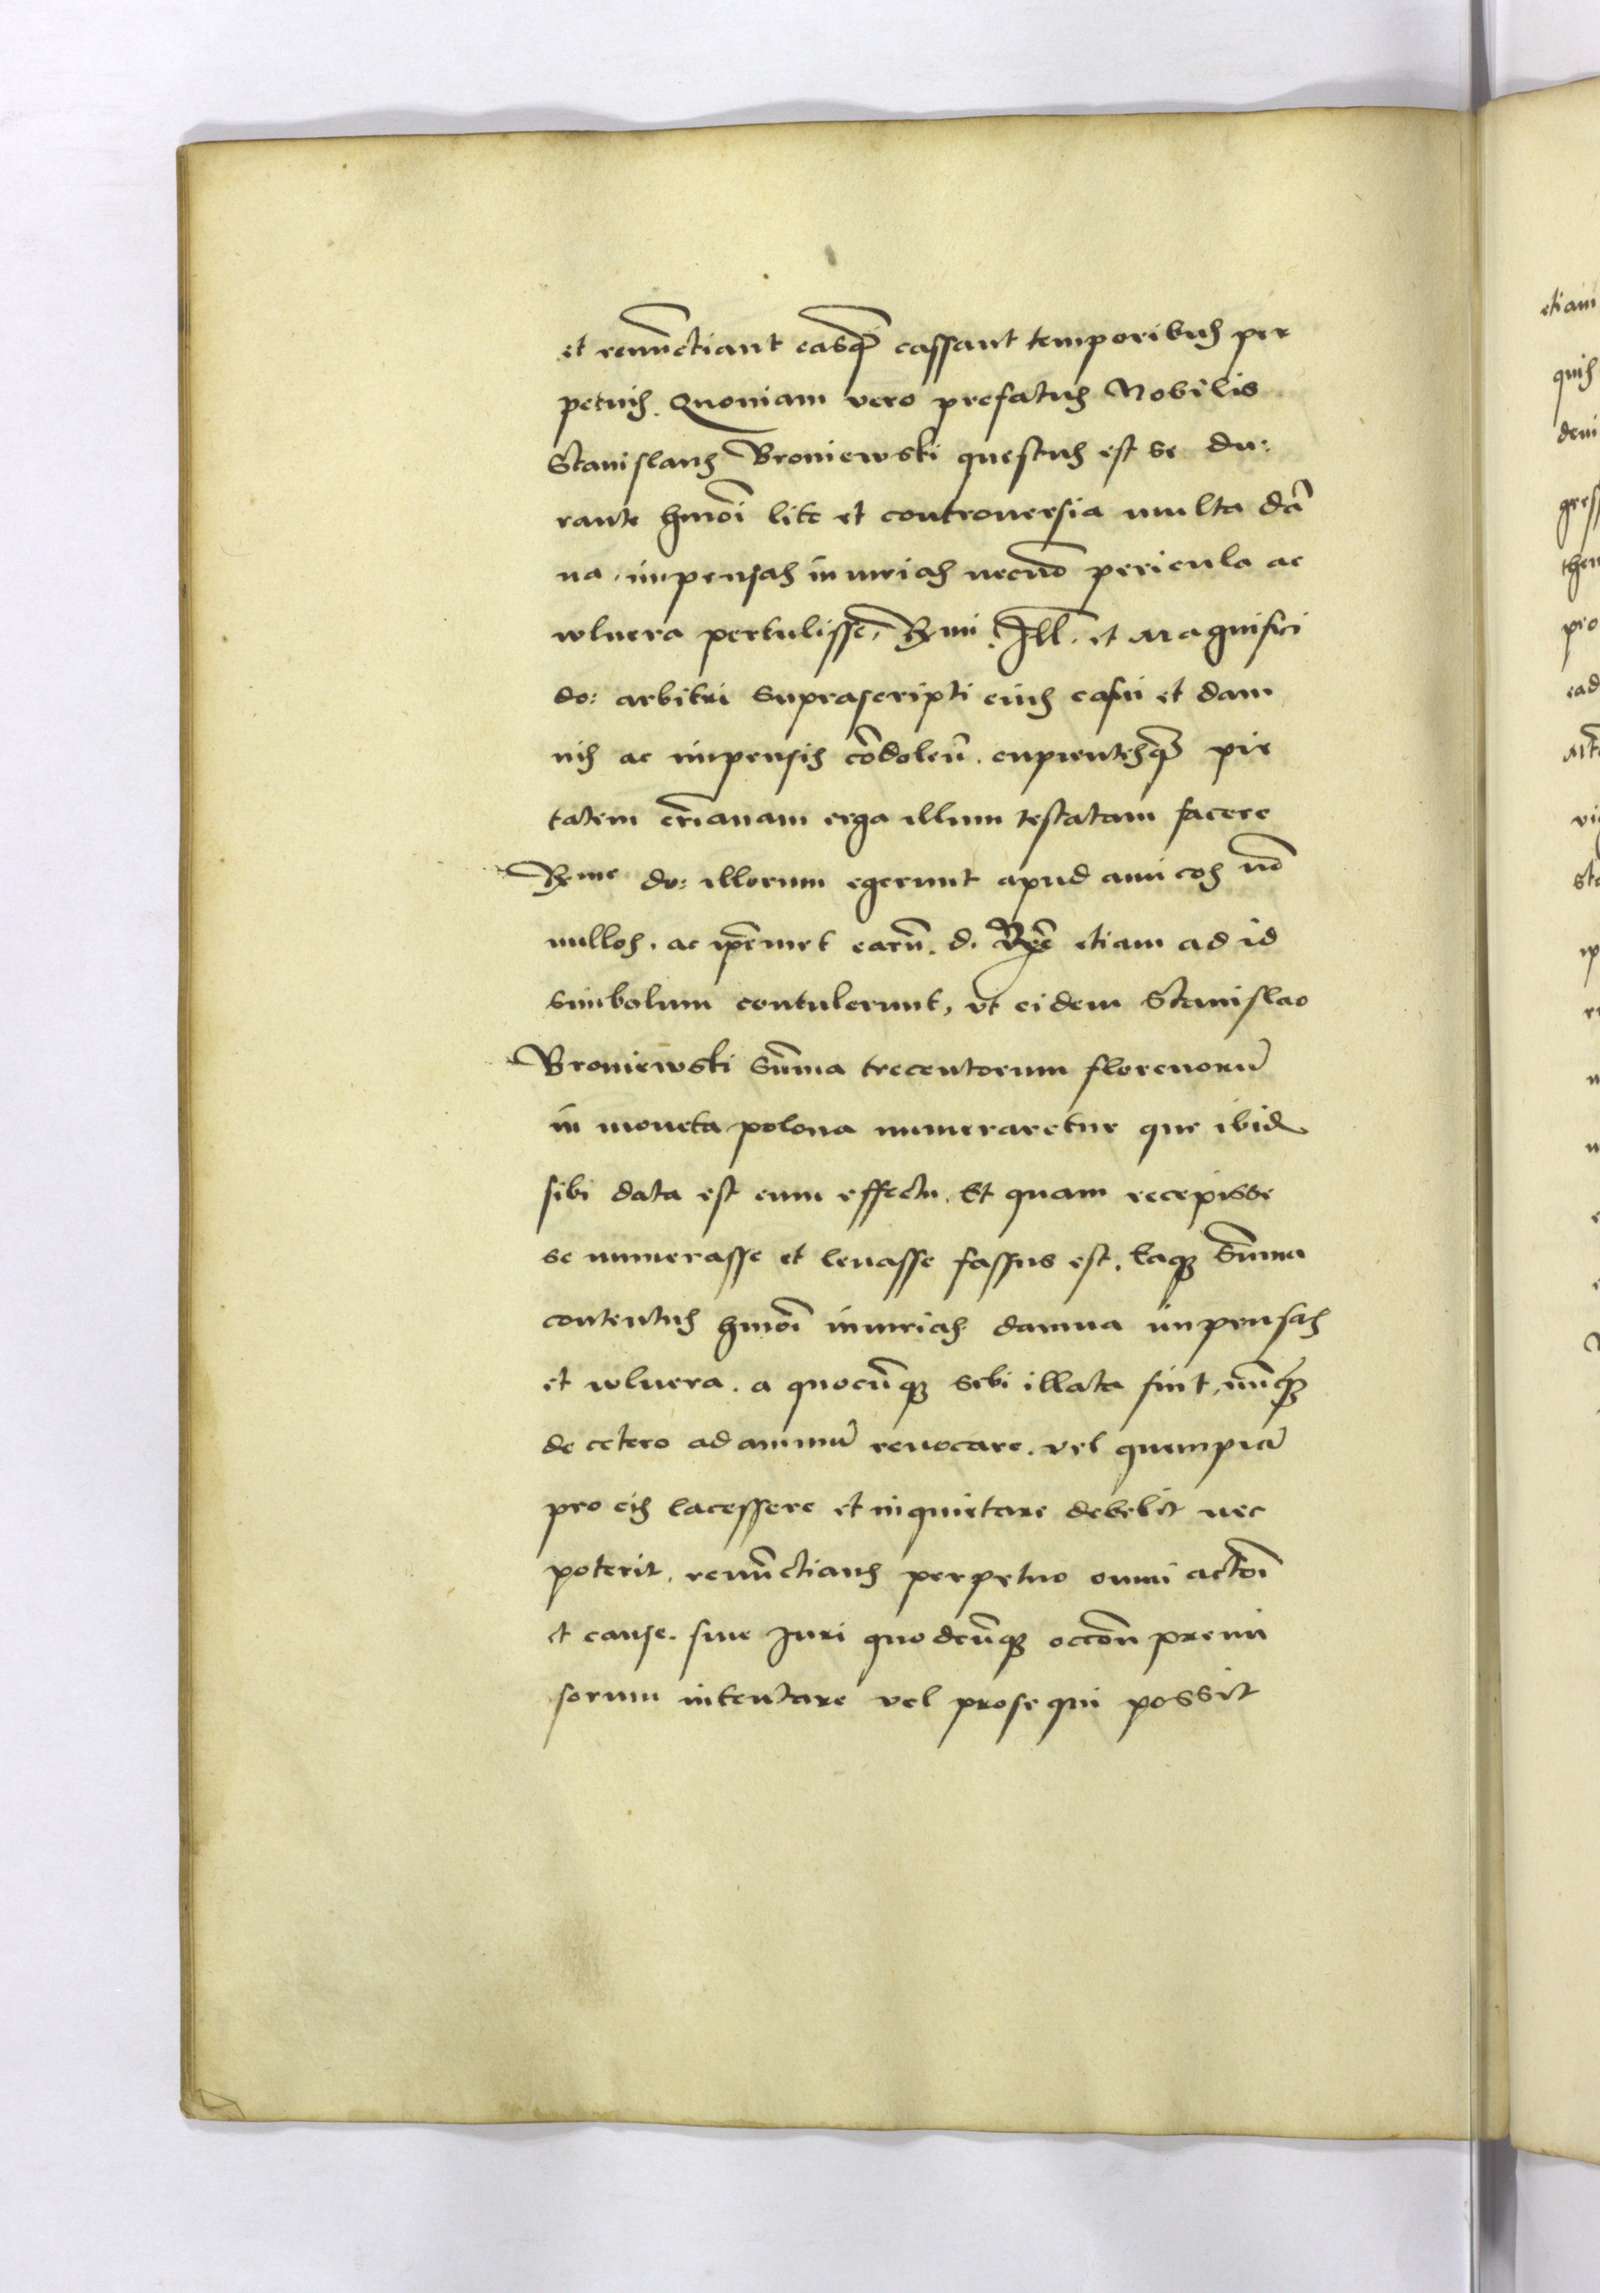 et renūctiant easq̃ cassant temporibus per
petuis. Quoniam vero prefatus Nobilis
Stanislaus Broniewski questus est se du:
rante hmoi lite et controuersia multa dā
na, impensas iniurias necnō pericula ac
wlnera pertulisse, Rmi. Ill. et Magnifici
do: arbitri suprascripti eius casui et dam
nis ac impensis cōdolen̄. cupientesq̃ pie
tatem cr̄ianam erga illum testatam facere
Rme do: illorum egerunt apud amicos nō
nullos. ac ip̄emet earū. d. R etiam ad id
simbolum contulerunt, vt eidem Stanislao
Broniewski sūma trecentorum florenorū
in moneta polona numeraretur que ibid
sibi data est cum effectu. Et quam recepisse
se numerasse et leuasse fassus est. Eaq; Sūma
contentus hmoi iniurias damna impensas
et wlnera. a quocūq; sibi illata sint, nūq̃
de cetero ad animū reuocare. vel quempiā
pro eis lacessere et inquietare debebit nec
poterit. renūctians perpetuo omni actōi
et cause. siue Juri quodcūq; occōn premi
sorum intentare vel prosequi possit
etiam
quis
dem
gress
then
pro
ead
vi
sta